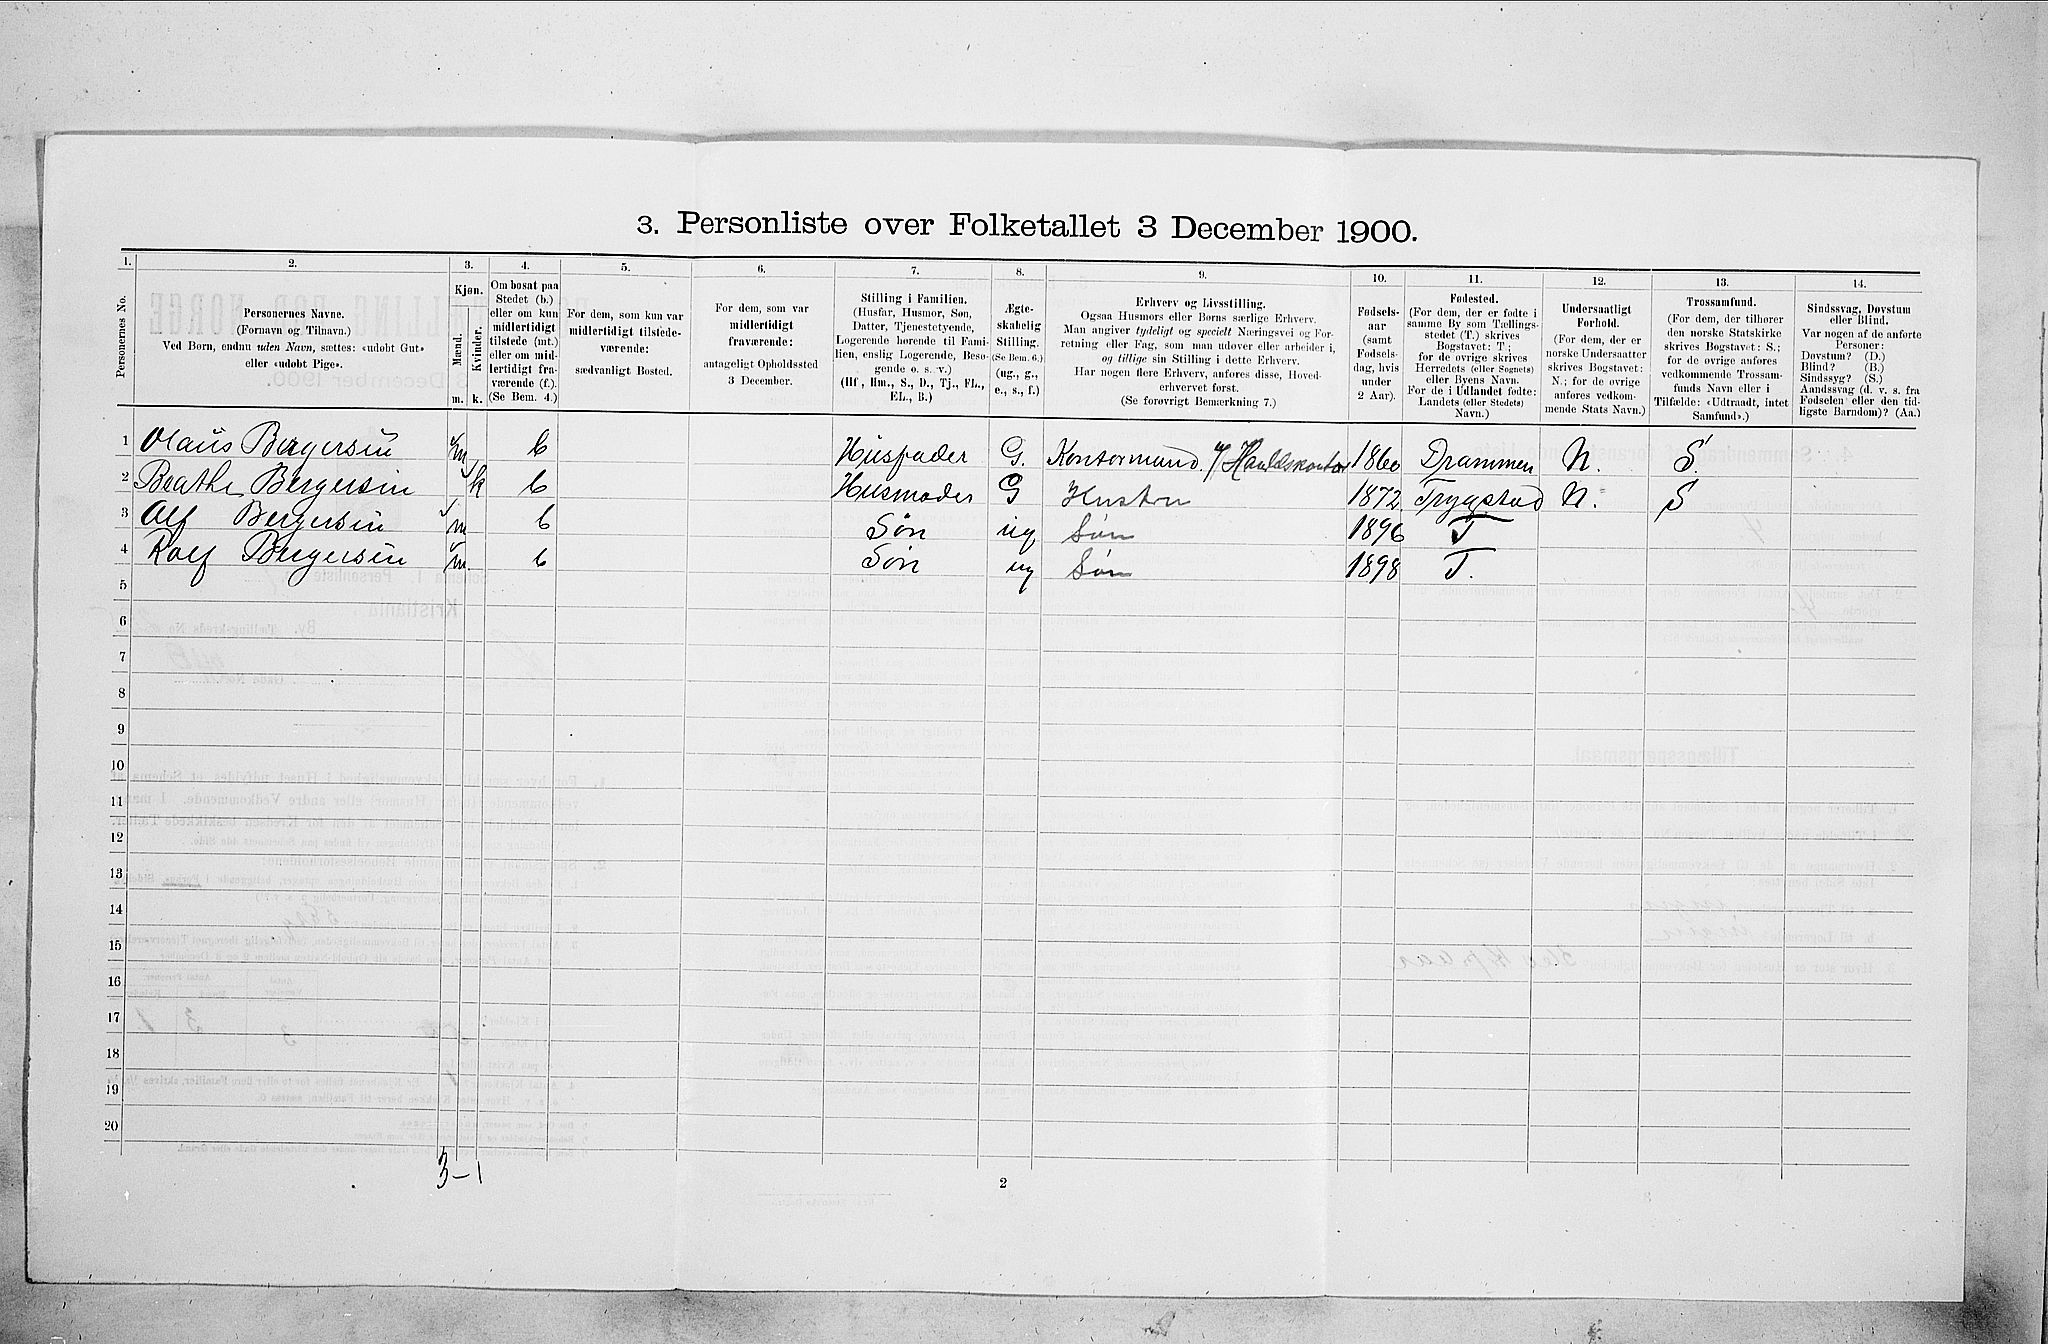 3. Personliste over Folketallet 3 December 1900.
1. 2. 3. 4. 5. 6. 7. 8. 9. 10. 11. 12. 13. 14.
Personernes No.
Personernes Navne.
(Fornavn og Tilnavn.)
Ved Børn, endnu uden Navn, sættes: «udøbt Gut»
eller «udøbt Pige».
Kjøn.
Mænd. Kvinder.
m. k.
Om bosat paa
Stedet (b.)
eller om kun
midlertidigt
tilstede (mt.)
eller om mid-
lertidigt fra-
værende (f.).
(Se Bem. 4.)
For dem, som kun var
midlertidigt tilstede-
værende:
sædvanligt Bosted.
For dem, som var
midlertidigt
fraværende:
antageligt Opholdssted
3 December.
Stilling i Familien.
(Husfar, Husmor, Søn,
Datter, Tjenestetyende,
Logerende hørende til Fami-
lien, enslig Logerende, Besø-
gende o. s. v.)
(Hf., Hm., S., D., Tj., FL.,
EL., B.)
Ægte-
skabelig
Stilling.
(Se Bem. 6.)
(ug., g.,
e., s., f.)
Erhverv og Livsstilling.
Ogsaa Husmors eller Børns særlige Erhverv.
Man angiver tydeligt og specielt Næringsvei og For-
retning eller Fag, som man udøver eller arbeider i,
og tillige sin Stilling i dette Erhverv.
Har nogen flere Erhverv, anføres disse, Hoved-
erhvervet først.
(Se forøvrigt Bemærkning 7.)
Fødsels-
aar
(samt
Fødsels-
dag, hvis
under
2 Aar).
Fødested.
(For dem, der er fødte i
samme By som Tællings-
stedet (T.) skrives
Bogstavet: T.;
for de øvrige skrives
Herredets (eller Sognets)
eller Byens Navn.
For de i Udlandet fødte:
Landets (eller Stedets)
Navn.)
Undersaatligt
Forhold.
(For dem, der er
norske Undersaatter
skrives Bogstavet:
N.; for de øvrige
anføres vedkom-
mende Stats Navn.)
Trossamfund.
(For dem, der tilhører
den norske Statskirke
skrives Bogstavet: S.;
for de øvrige anføres
vedkommende Trossam-
funds Navn eller i
Tilfælde: «Udtraadt, intet
Samfund».)
Sindssvag, Døvstum
eller Blind.
Var nogen af de anførte
Personer:
Døvstum? (D.)
Blind? (B.)
Sindssyg? (S.)
Aandssvag (d. v. s. fra
Fødselen eller den tid-
ligste Barndom)? (Aa.)
1 Olaus Bergersen m b Husfader G. Kontormand 1860 Drammen N. S.
2 Beathe Bergersen k b Husmoder G Hustru 1872 Trygstad N. S
3 Alf Bergersen m b Søn ug Søn 1896 T
4 Rolf Bergersen m b Søn ug Søn 1898 T.
5
6
7
8
9
10
11
12
13
14
15
16
17
18
19
20
3-1
2